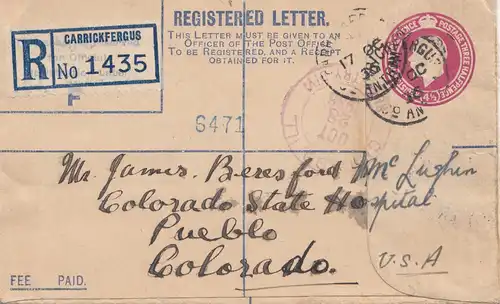 REGISTERED LETTER.
THIS LETTER MUST BE GIVEN TO AN
OFFICER OF THE POST OFFICE
TO BE REGISTERED, AND A RECEIPT
OBTAINED FOR IT.
CARRICKFERGUS
R No 1435
F
6471
POSTAGE THREE HALFPENCE
17 OC
Mr. James Beresford McLughin
Colorado State Hospital
Pueblo
Colorado.
U.S.A
FEE PAID.